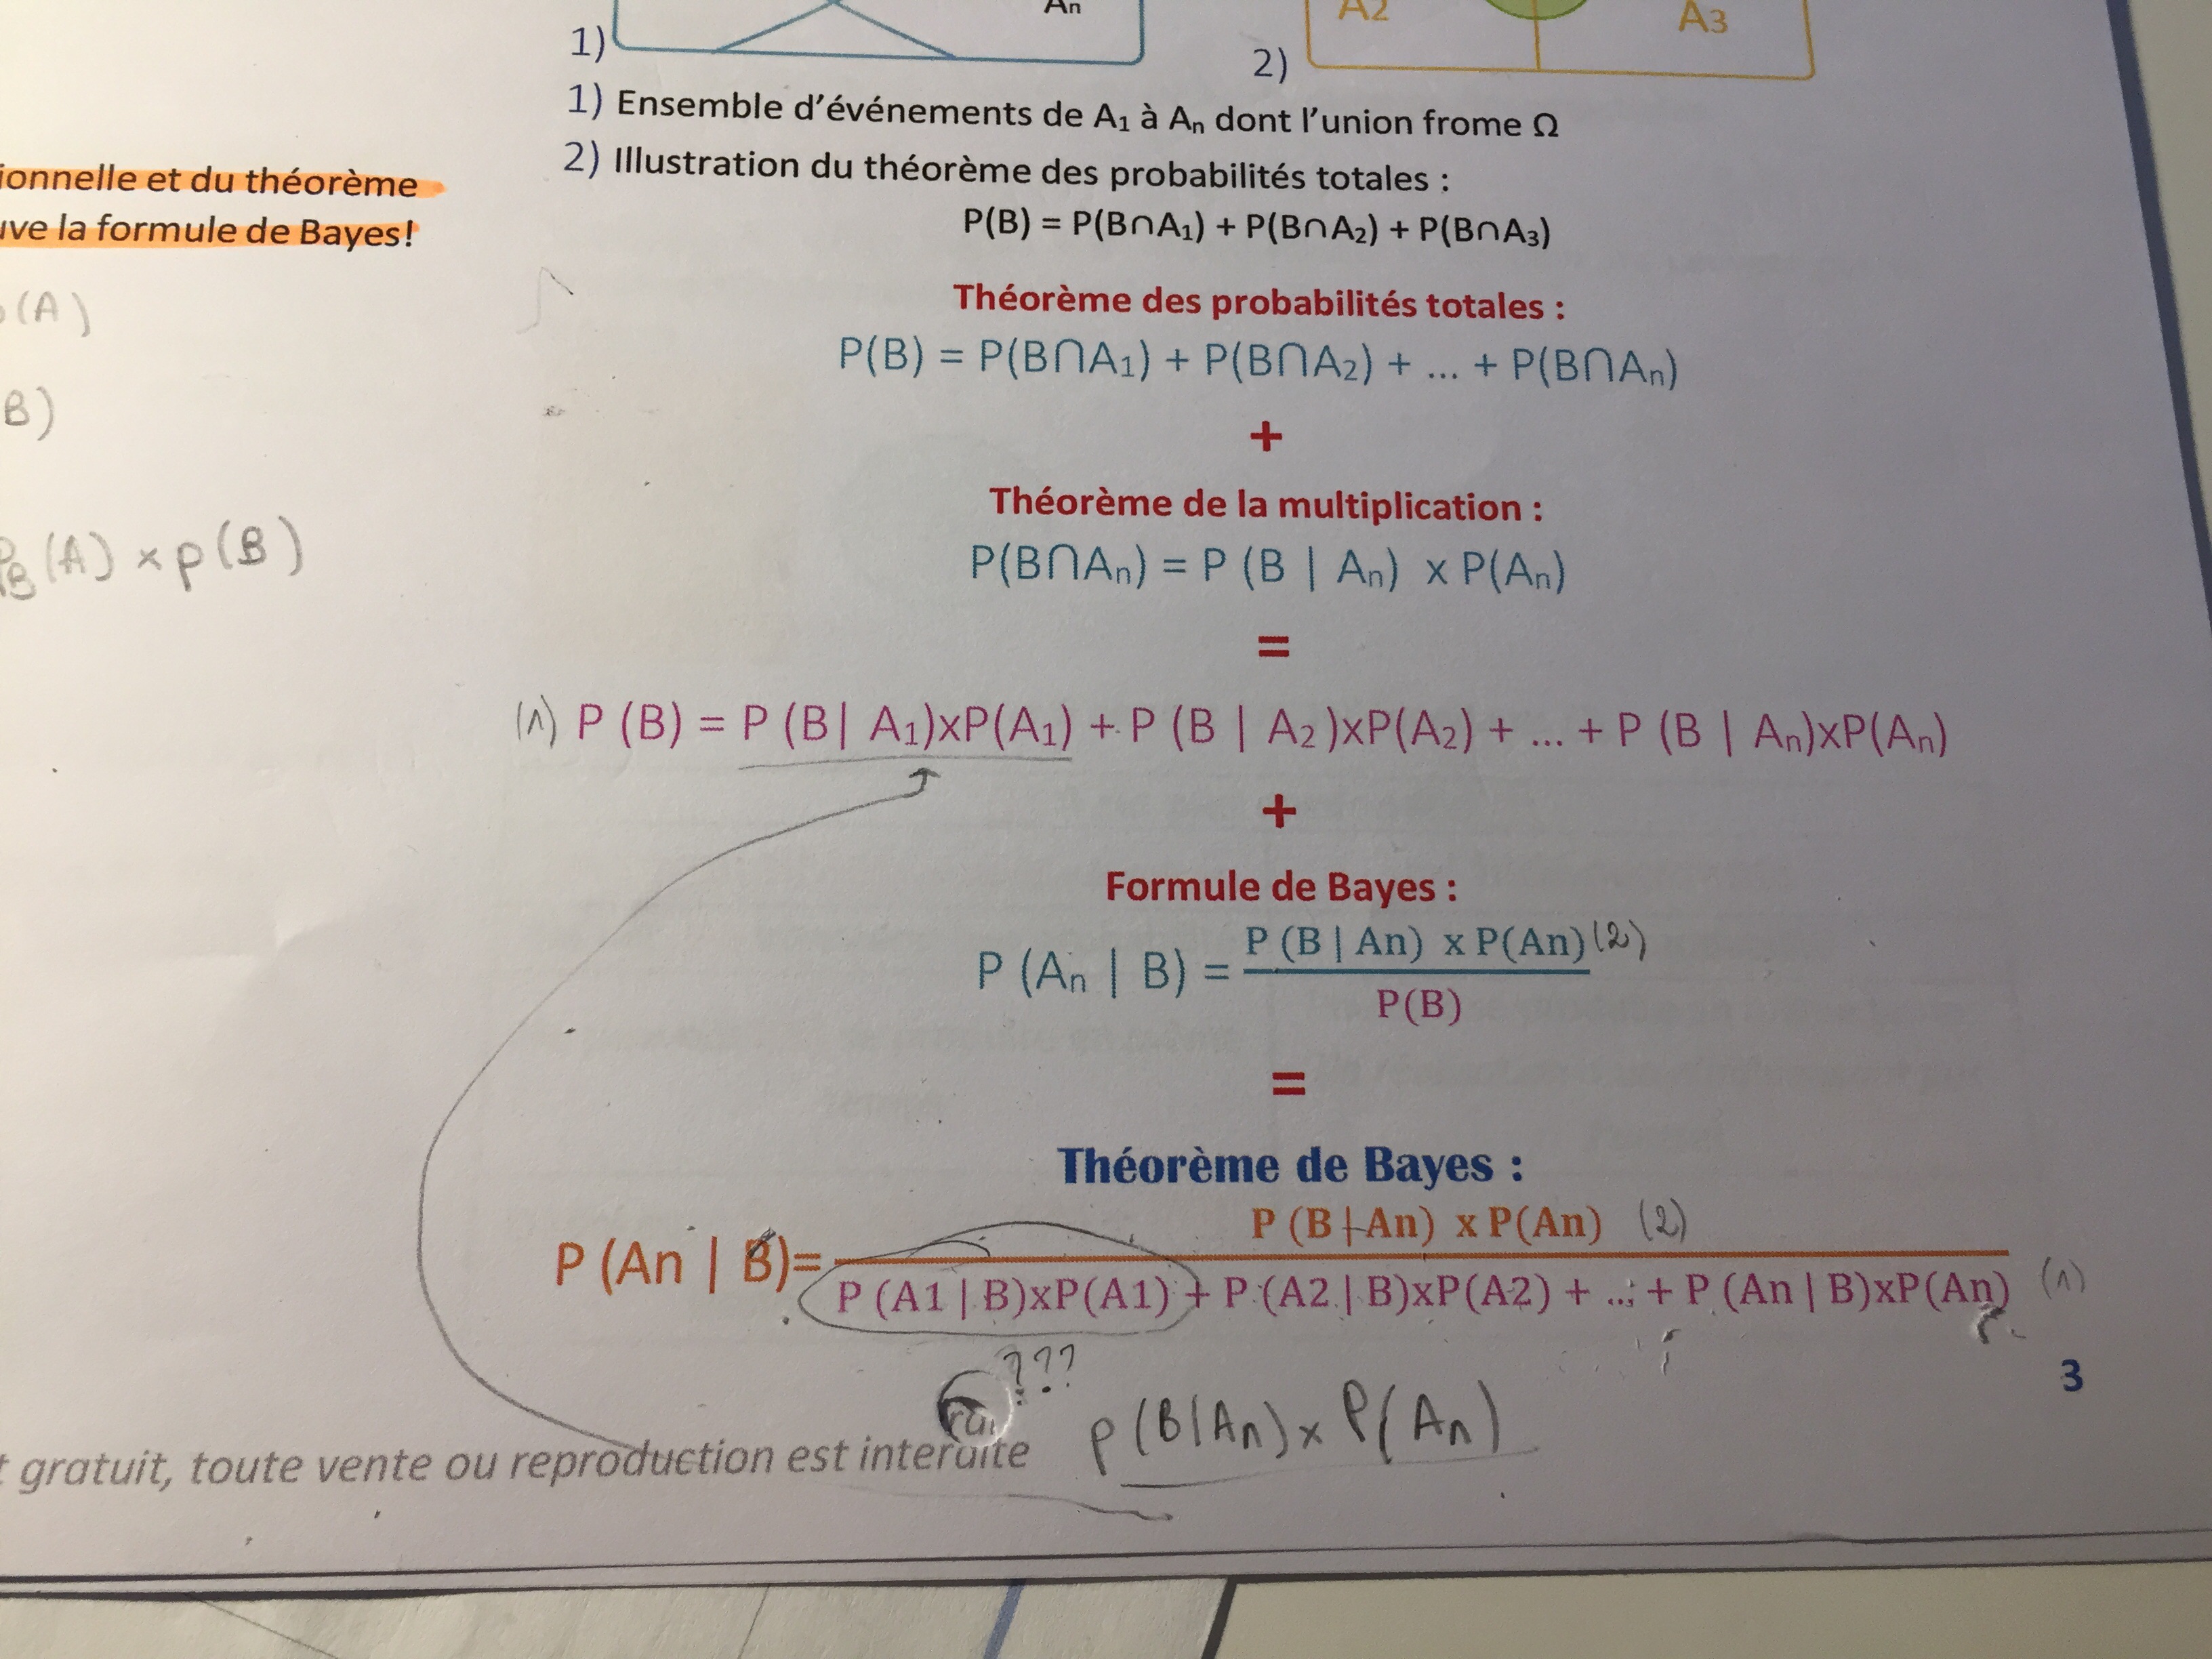 An
A2
A3
1)
2)
1) Ensemble d'événements de A1 à An dont l'union frome Ω
2) Illustration du théorème des probabilités totales :
P(B) = P(B∩A1) + P(B∩A2) + P(B∩A3)
ionnelle et du théorème
uve la formule de Bayes!
(A)
B)
PB(A) × p(B)
Théorème des probabilités totales :
P(B) = P(B∩A1) + P(B∩A2) + ... + P(B∩An)
+
Théorème de la multiplication :
P(B∩An) = P (B | An) x P(An)
=
(1) P (B) = P (B| A1)xP(A1) + P (B | A2 )xP(A2) + ... + P (B | An)xP(An)
+
Formule de Bayes :
P (An | B) = P (B | An) x P(An) (2)
P(B)
=
Théorème de Bayes :
P (B | An) x P(An) (2)
P (An | B)=
P (A1 | B)xP(A1) + P (A2 | B)xP(A2) + ... + P (An | B)xP(An) (1)
???
3
p(B|An) × P(An)
t gratuit, toute vente ou reproduction est interdite